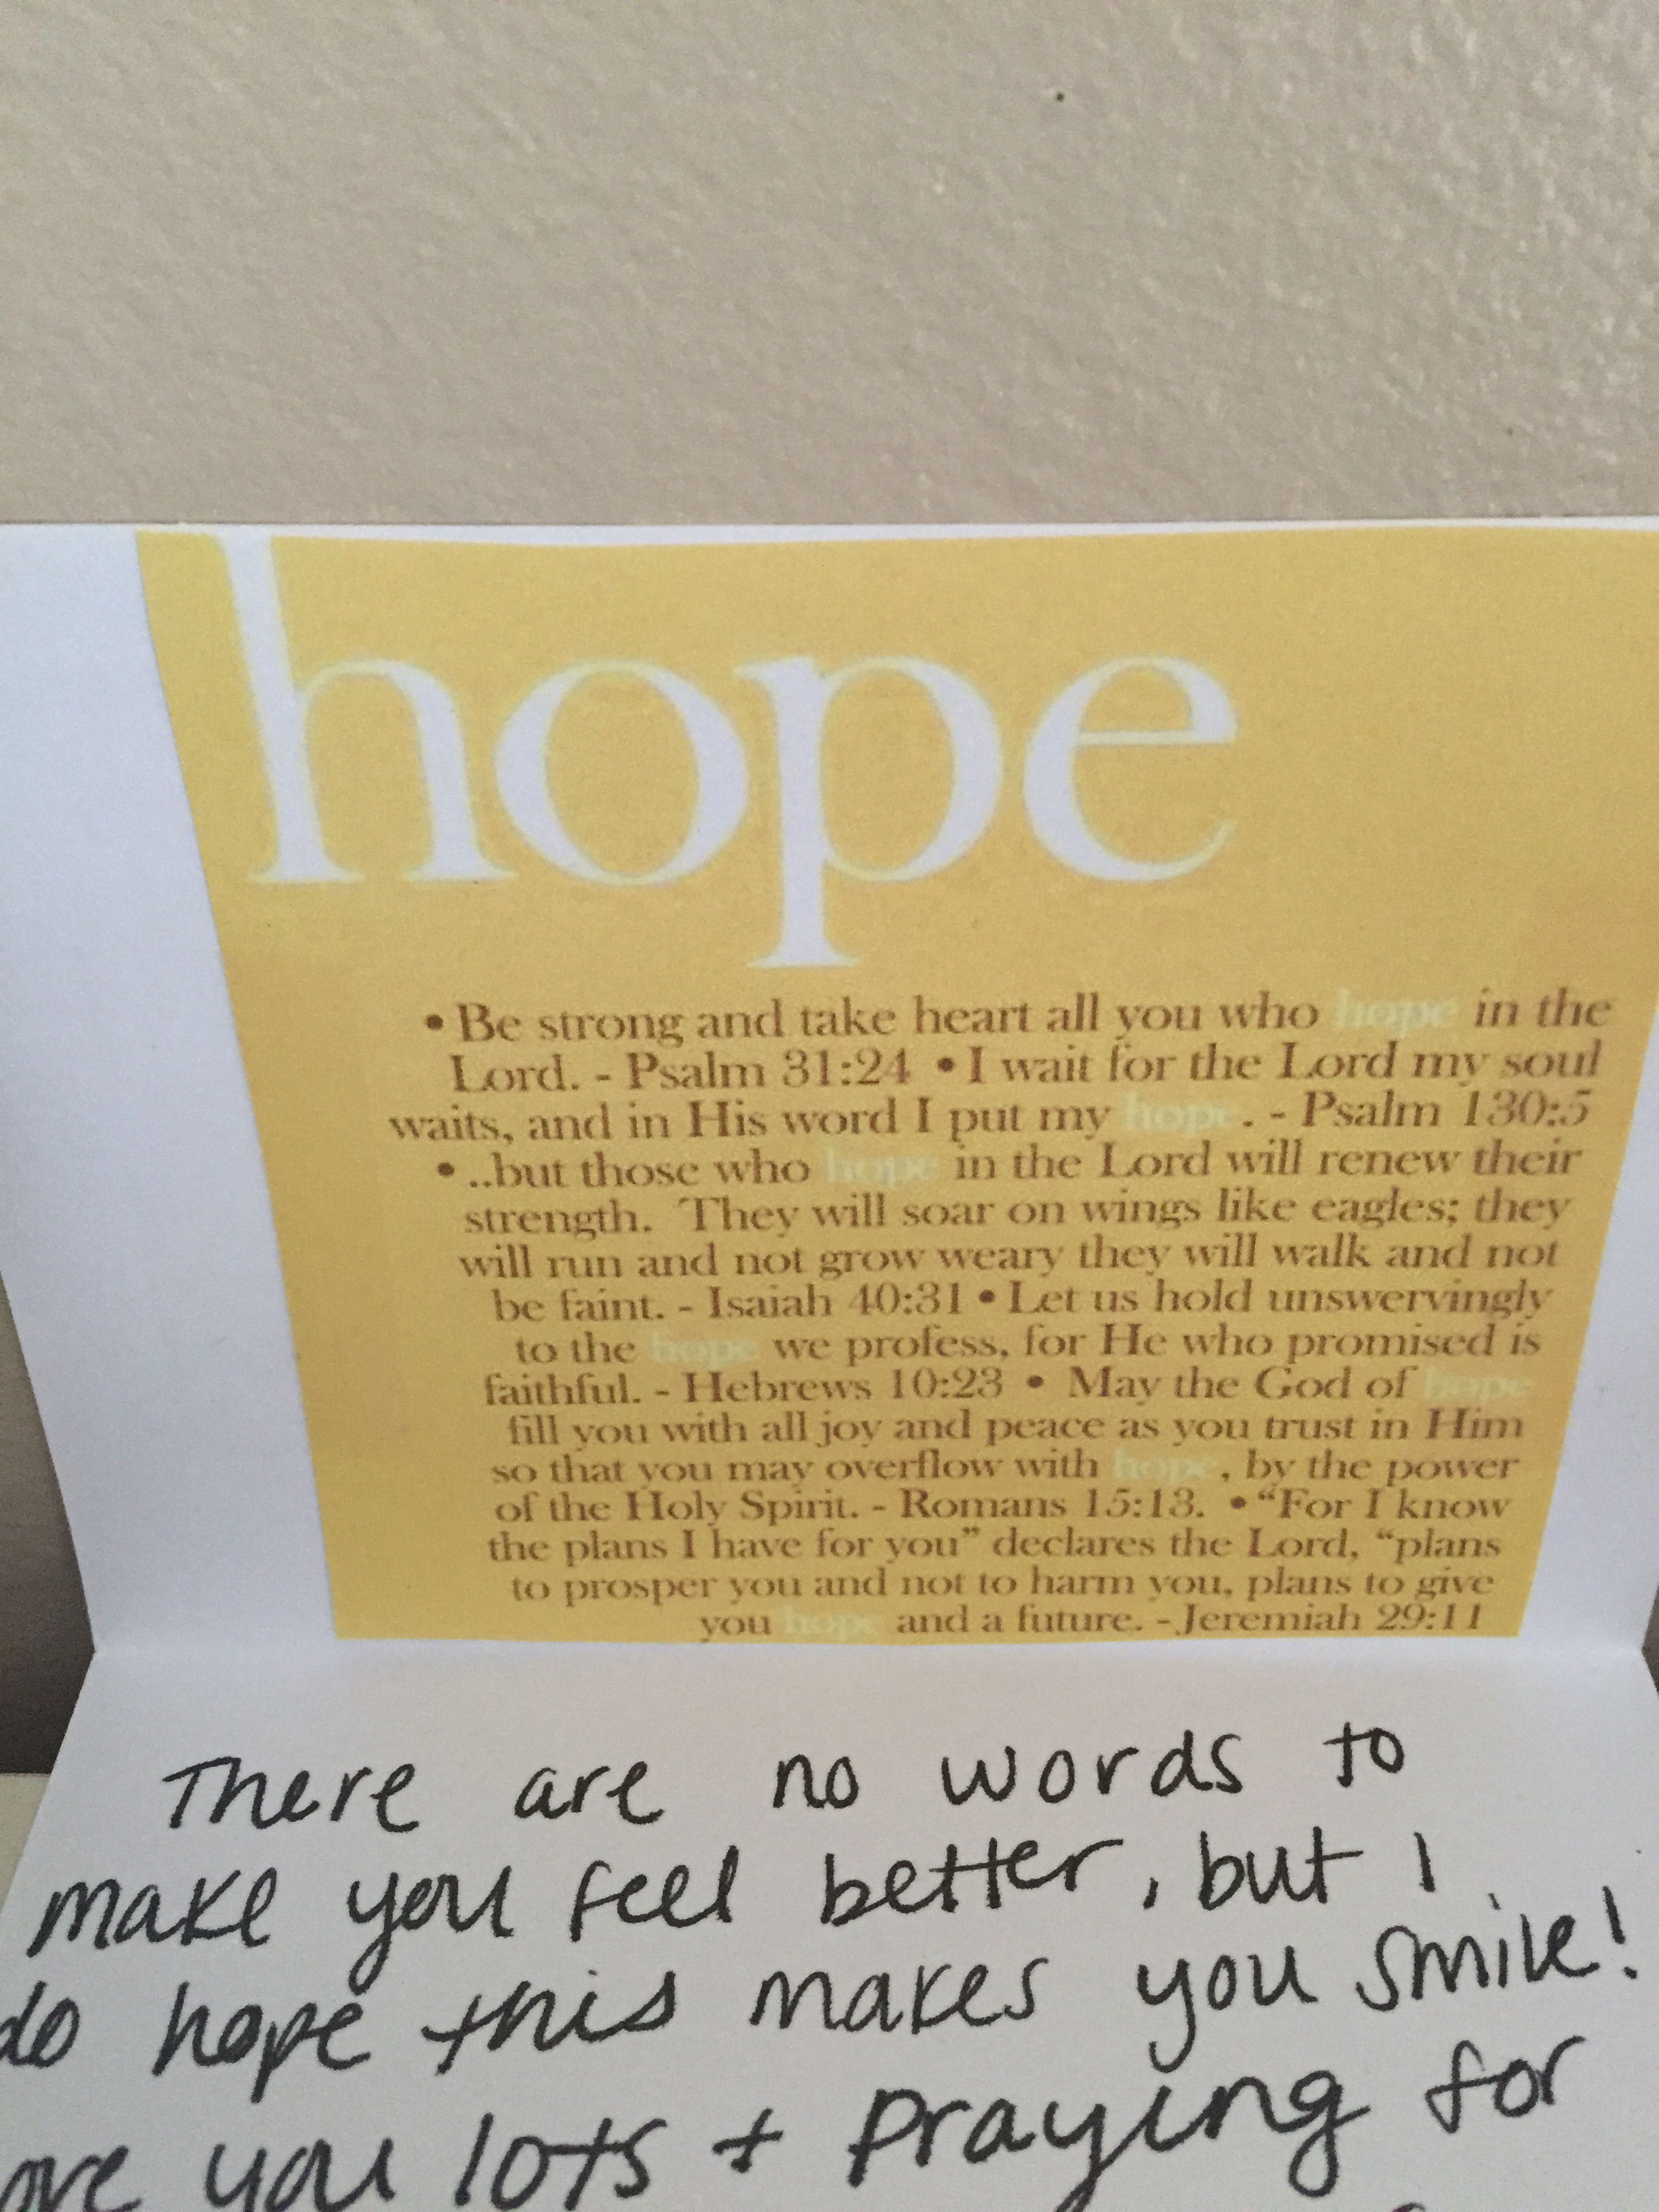 hope
• Be strong and take heart all you who hope in the
Lord. - Psalm 31:24 • I wait for the Lord my soul
waits, and in His word I put my hope. - Psalm 130:5
• ..but those who hope in the Lord will renew their
strength. They will soar on wings like eagles; they
will run and not grow weary they will walk and not
be faint. - Isaiah 40:31 • Let us hold unswervingly
to the hope we profess, for He who promised is
faithful. - Hebrews 10:23 • May the God of hope
fill you with all joy and peace as you trust in Him
so that you may overflow with hope, by the power
of the Holy Spirit. - Romans 15:13. • “For I know
the plans I have for you” declares the Lord, “plans
to prosper you and not to harm you, plans to give
you hope and a future. - Jeremiah 29:11
There are no words to
make you feel better, but i
do hope this makes you smile!
ove you lots + praying for